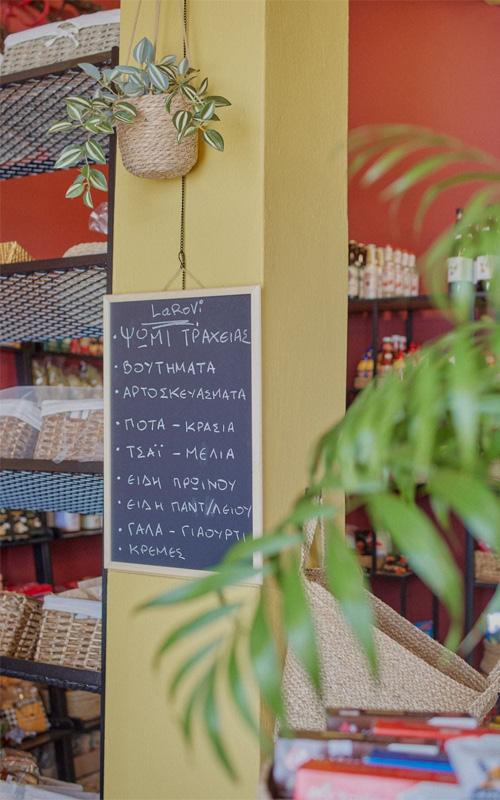 LaRoVi
• ΨΩΜΙ ΤΡΑΧΕΙΑΣ
• ΒΟΥΤΗΜΑΤΑ
• ΑΡΤΟΣΚΕΥΑΣΜΑΤΑ
• ΠΟΤΑ - ΚΡΑΣΙΑ
• ΤΣΑΪ - ΜΕΛΙΑ
• ΕΙΔΗ ΠΡΩΙΝΟΥ
• ΕΙΔΗ ΠΑΝΤ/ΛΕΙΟΥ
• ΓΑΛΑ - ΓΙΑΟΥΡΤΙ
• ΚΡΕΜΕΣ